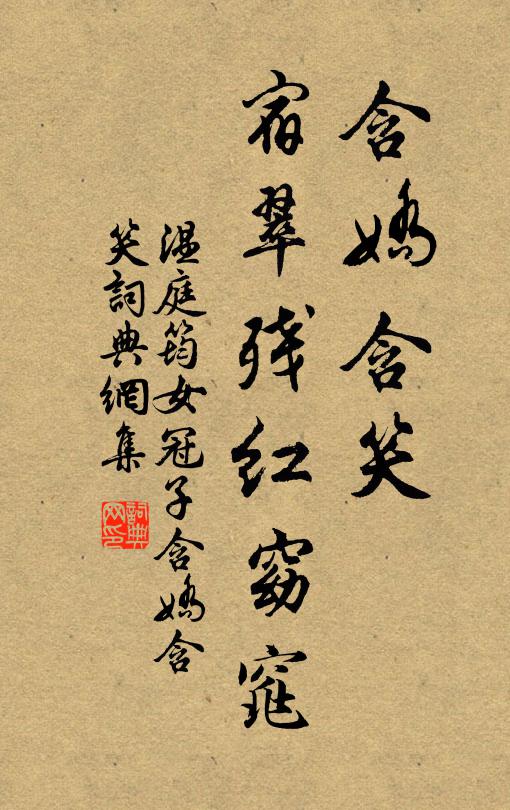 含嬌含笑
宿翠残紅窈窕
温庭筠女冠子含嬌含
笑詞典網集
詞典
网印